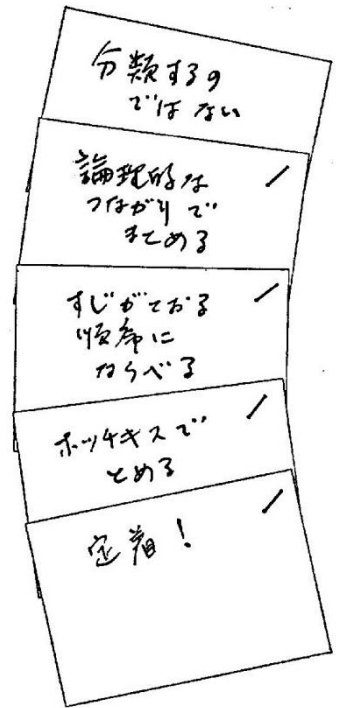 分類するの
ではない
論理的な
つながりで
まとめる
すじがとおる
順序に
ならべる
ホッチキスで
とめる
定着!